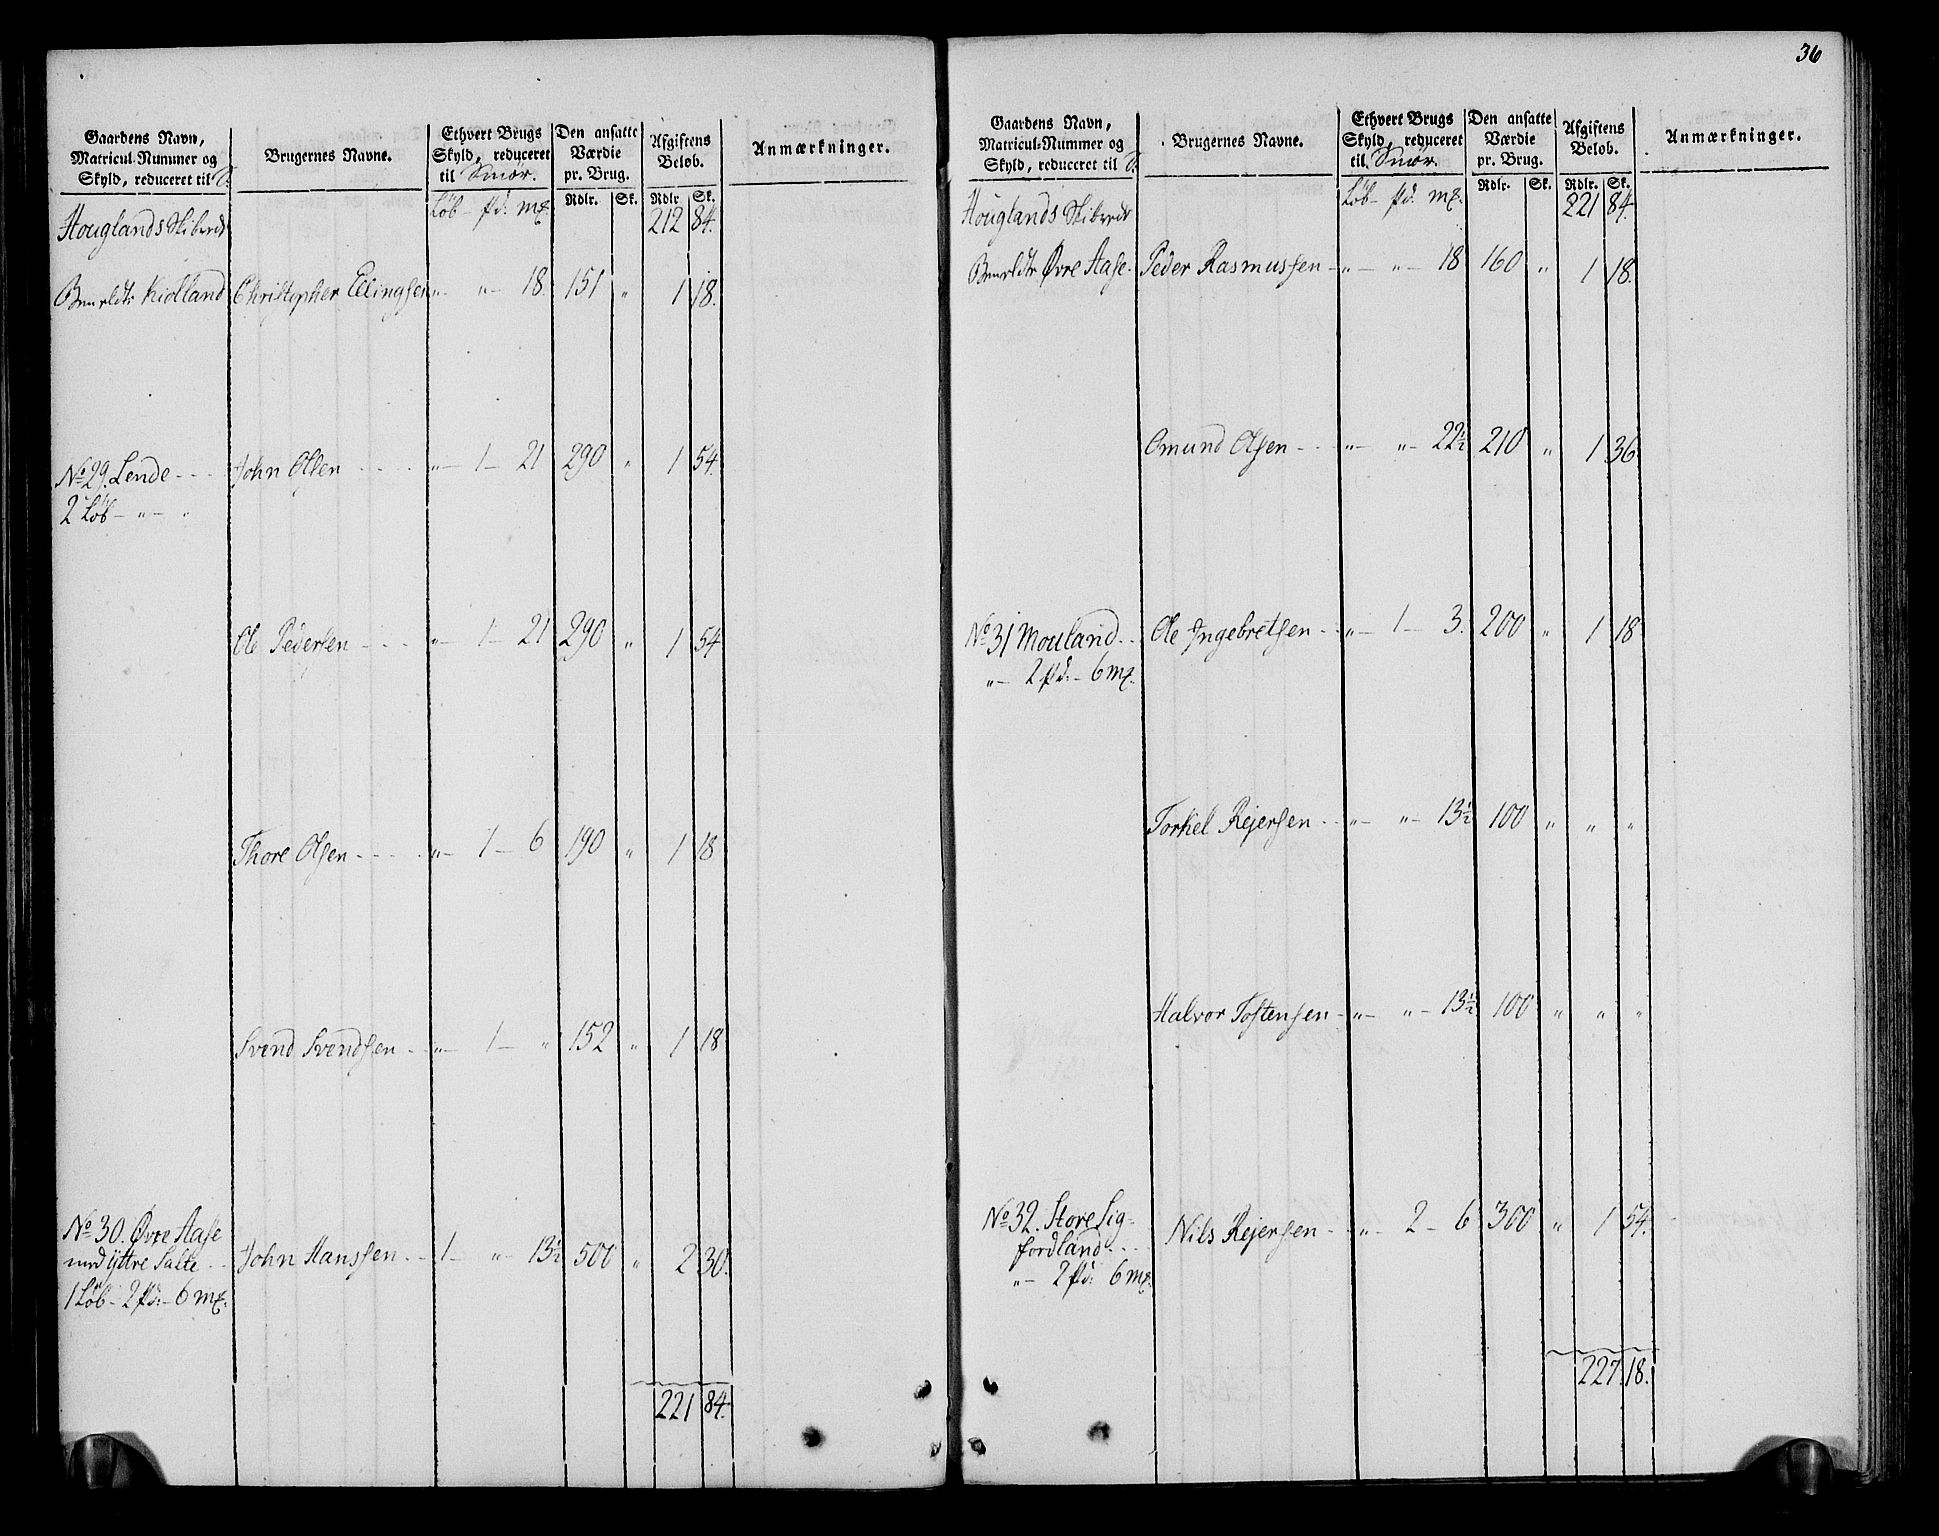 Gaardens Navn, Matricul-Nummer og Skyld, reduceret til S:
Brugernes Navne.
Ethvert Brugs Skyld, reduceret til Smör.
Den ansatte Værdie pr. Brug.
Afgiftens Beløb.
Anmærkninger.
Rdlr. Sk. Rdlr Sk.
Houglands Skibrede Löb - pd: mk. 212 84.
Kidland Christopher Ellingsen " - " - 18. 151 " 1 18.
No 29. Lende - - - John Olsen - - - - " - 1 - 21 290 " 1 54.
2 Löb - " - "
Ole Pedersen - - - - " - 1 - 21 290 " 1 54
Thore Olsen - - - - " - 1 - 6 190 " 1 18
Svend Svendsen - - " - 1 - " 152 " 1 18
No 30. Øvre Aase
med ÿttre Salte - - John Hanssen - - 1 - " - 13½ 500 " 2 30.
1 Löb - 2 pd: - 6 mk.
221 84.
36
Gaardens Navn, Matricul-Nummer og Skyld, reduceret til S:
Brugernes Navne.
Ethvert Brugs Skyld, reduceret til Smör.
Den ansatte Værdie pr. Brug.
Afgiftens Beløb.
Anmærkninger.
Rdlr. Sk. Rdlr. Sk.
Houglands Skibrede Löb - pd: mk. 221 84.
Øvre Aase - Peder Rasmussen - " - " - 18 160 " 1 18.
Omund Olsen - - - " - " - 22½ 210 " 1 36
No 31 Mouland - - Ole Ingebretsen - - " - 1 - 3. 200 " 1 18
" - 2 pd: - 6 mk.
Torkel Rejersen - - " - " - 13½ 100 " " "
Halvor Tostensen - " - " - 13½ 100 " " "
No 32. Store Sig-
fordland - - - Nils Rejersen - - " - 2 - 6 300 " 1 54.
" - 2 pd: 6 mk.
227 18.